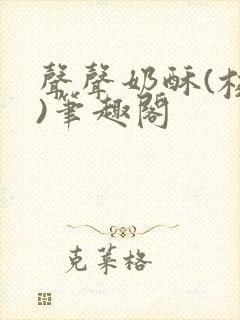 聲聲奶酥(
)筆趣閣
克萊格